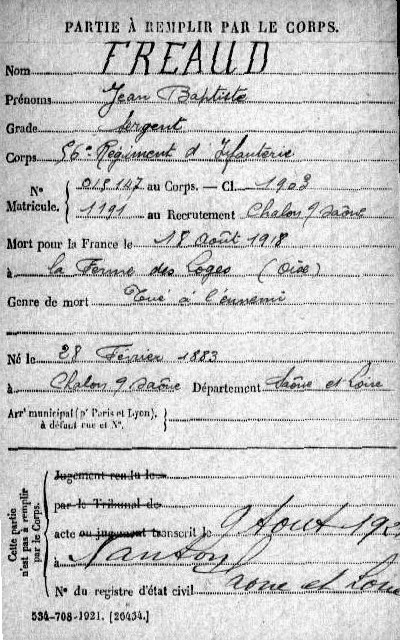 PARTIE À REMPLIR PAR LE CORPS.
Nom FREAUD
Prénoms Jean Baptiste
Grade Sergent
Corps 56e Régiment d'Infanterie
N° Matricule. { 015147 au Corps. — Cl. 1903
1191 au Recrutement Chalon s/ Saône
Mort pour la France le 18 Août 1918
à la Ferme des Loges (Oise)
Genre de mort Tué à l'ennemi
Né le 28 Février 1883
à Chalon s/ Saône Département Saône et Loire
Arrt municipal (pr Paris et Lyon), à défaut rue et N°. }
Cette partie n'est pas à remplir par le Corps.
Jugement rendu le
par le Tribunal de
acte ou jugement transcrit le 9 Aout
à Nanton
Saone et Loire
N° du registre d'état civil
534-708-1921. [26434.]